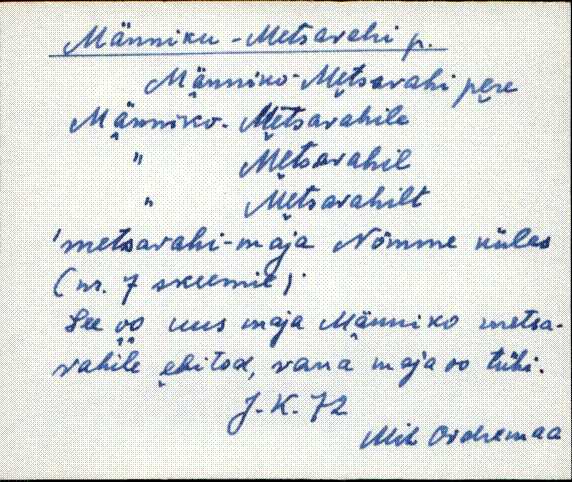 Männiku-Metsavahi p.
Männiko-Metsavahi pere
Männiko-Metsavahile
" Metsavahil
" Metsavahilt
'metsavahi-maja Nõmme külas
(nr. 7 skeemil).
See oo uus maja Männiko metsa-
vahile ehitod, vana maja oo tühi.
J.K. 72